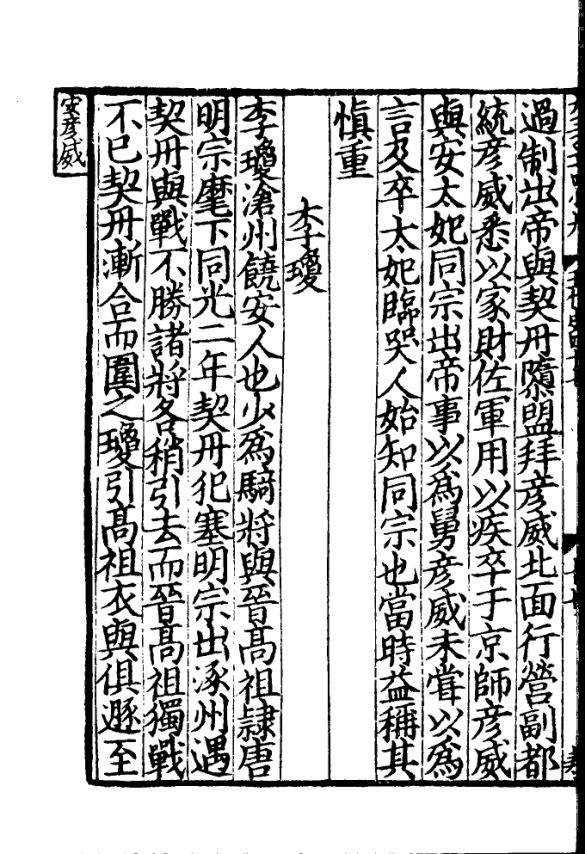 過制出帝與契丹隳盟拜彦威北面行營副都
統彦威悉以家財佐軍用以疾卒于京師彦威
與安太妃同宗出帝事以爲舅彦威未嘗以爲
言及卒太妃臨哭人始知同宗也當時益稱其
慎重
李瓊
李瓊滄州饒安人也少爲騎將與晉髙祖隷唐
明宗麾下同光二年契丹犯塞明宗出涿州遇
契丹與戰不勝諸將各稍引去而晉髙祖獨戰
不已契丹漸合而圍之瓊引髙祖衣與俱遯至
安彦威